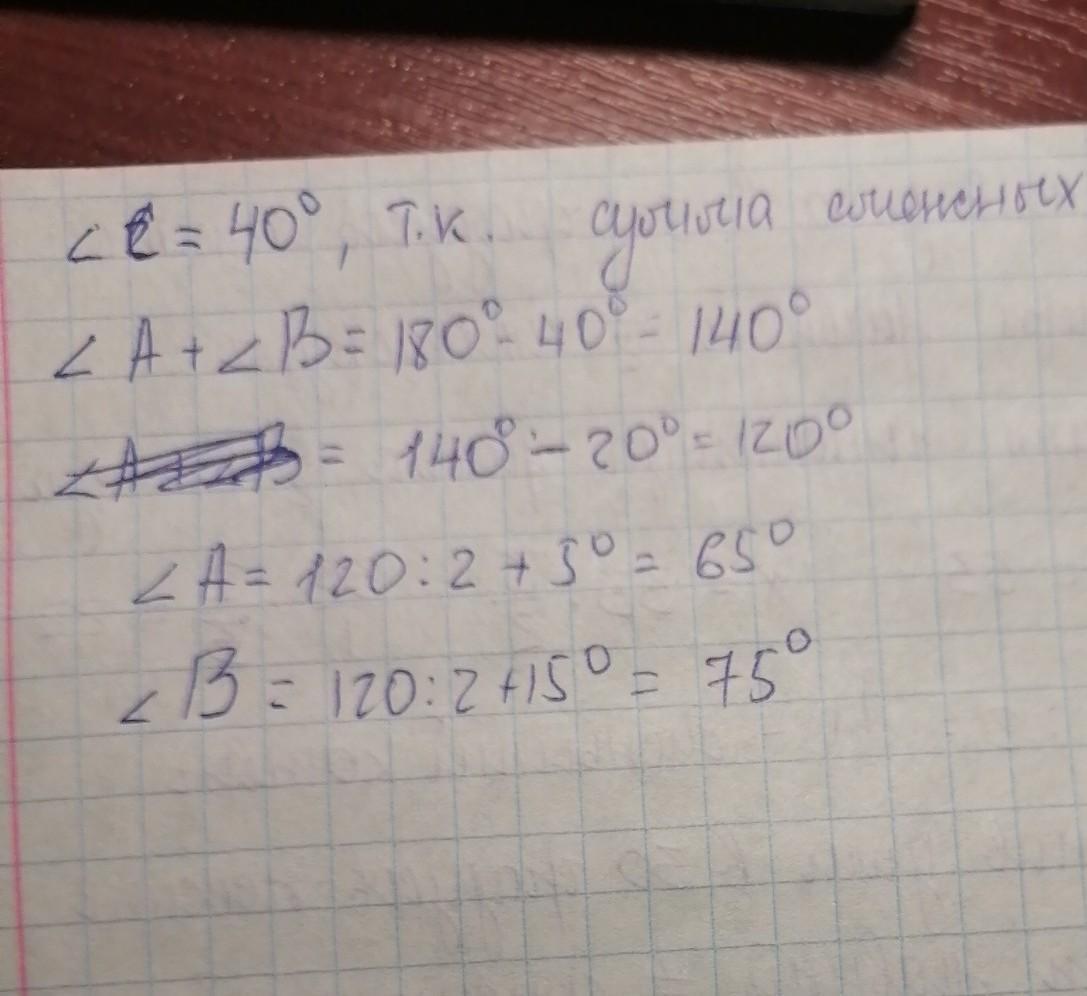 ∠C = 40°, т.к. сумма смежных
∠A + ∠B = 180° - 40° = 140°
= 140° - 20° = 120°
∠A = 120 : 2 + 5° = 65°
∠B = 120 : 2 + 15° = 75°